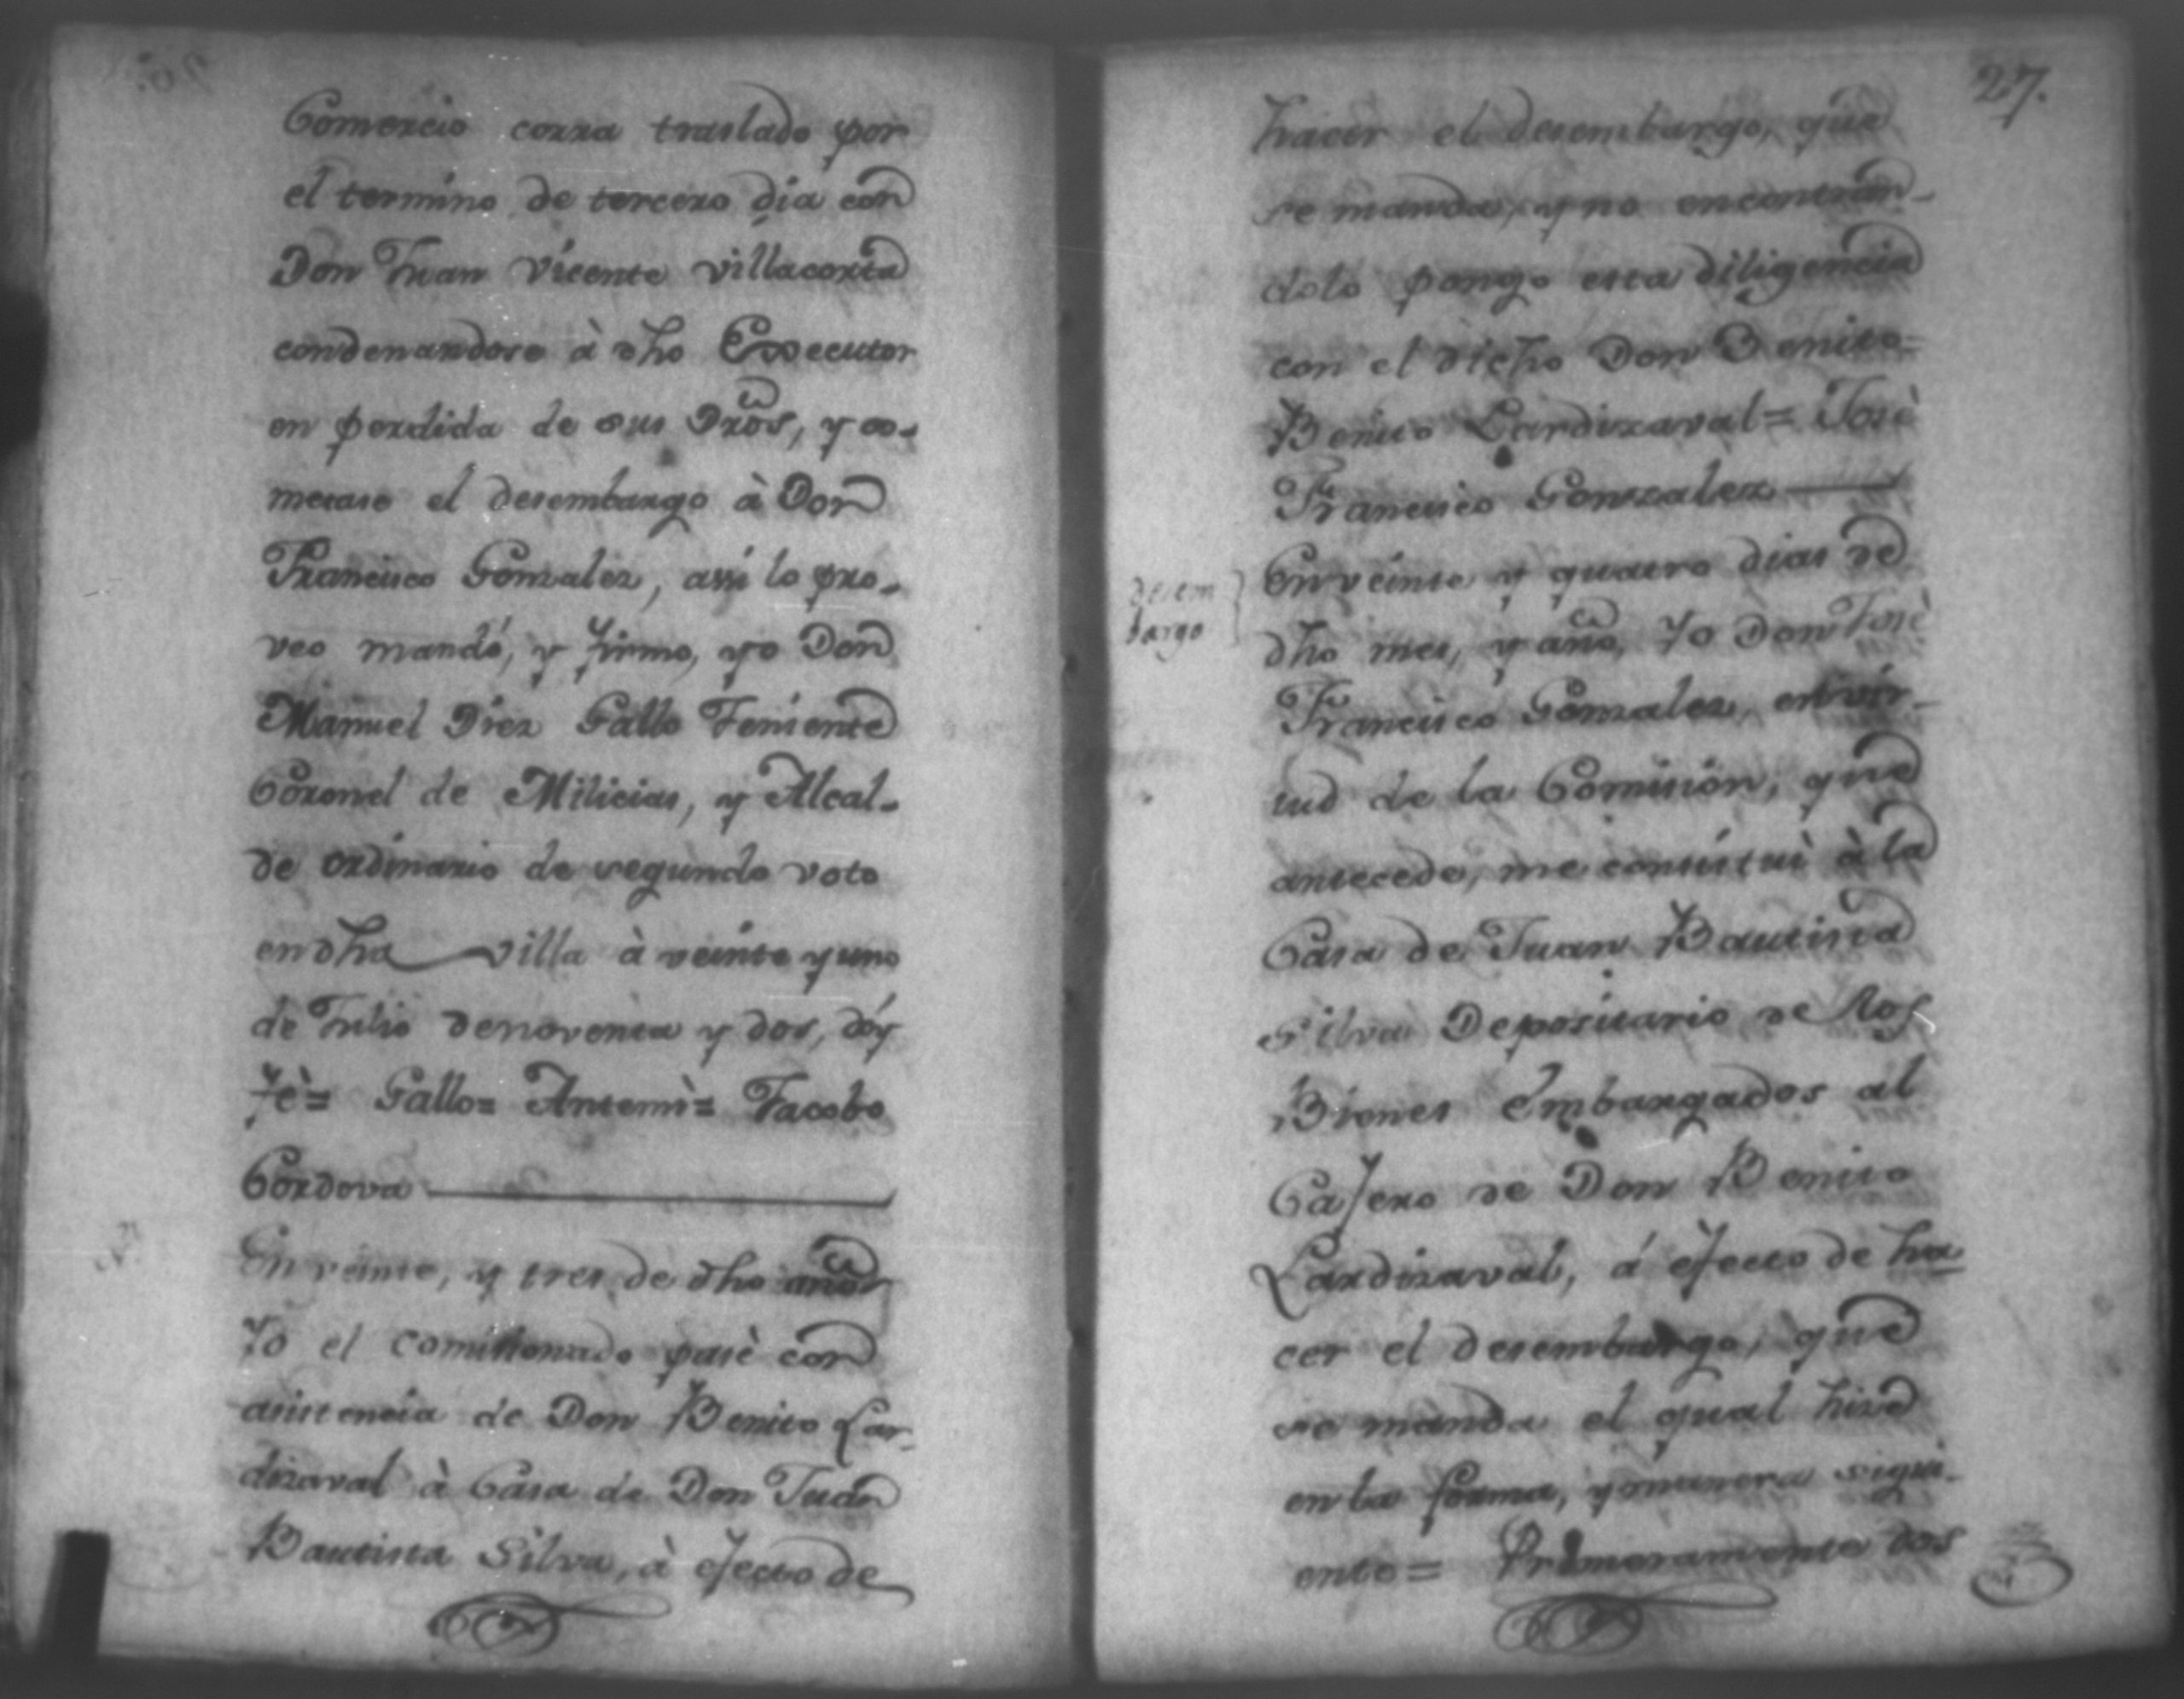 Comercio corra traslado por
el termino de tercero dia con
Don Juan Vicente Villacorta
condenandose à dho Executor
en perdida de sus Dros, y co-
metase el desembargo à Don
Francisco Gonzalez, assi lo pro-
veo mandó, y firmo, yo Don
Manuel Diez Gallo Teniente
Coronel de Milicias, y Alcal-
de ordinario de segundo voto
en dha villa à veinte y uno
de Julio de noventa y dos, dóy
fè= Gallo= Antemi= Jacobo
Cordova
En veinte, y tres de dho
Yo el comissionado pasè con
asistencia de Don Benito Lar-
dizaval à Casa de Don Juan
Bautista Silva, à efecto de
27.
hacer el desembargo, que
se manda, y no encontran-
dolo pongo esta diligencia
con el dicho Don Benito=
Benito Lardizaval= Josè
Francisco Gonzalez
desem
bargo
En veinte y quatro dias de
dho mes, y año, Yo Don Josè
Francisco Gonzalez, en vir-
tud de la Comision, que
antecede, me constituì à la
Casa de Juan Bautista
Silva Depositario de los
Bienes Embargados al
Casero de Don Benito
Lardizaval, á efecto de ha-
cer el desembargo, que
se manda el qual hize
en la forma, y manera sigui-
ente= Primeramente dos